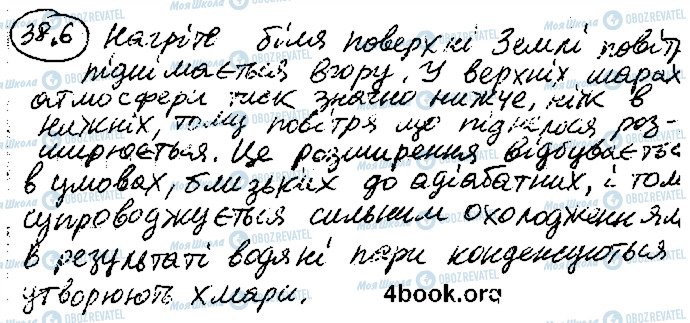 38.6 Нагріте біля поверхні Землі повітр
піднімається вгору. У верхніх шарах
атмосфери тиск значно нижче, ніж в
нижніх, тому повітря що піднялося, роз-
ширюється. Це розширення відбувається
в умовах, близьких до адіабатних, і том
супроводжується сильним охолодженням
в результаті водяні пари конденсуються
утворюють хмари.
4book.org